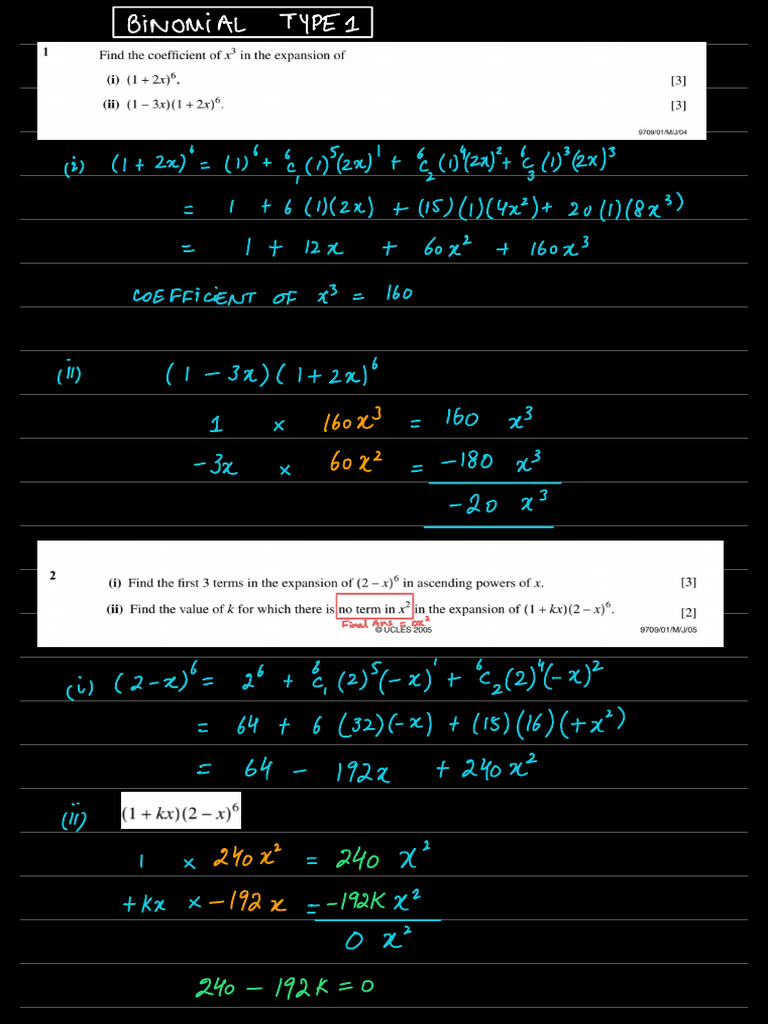 BINOMIAL TYPE 1
1 Find the coefficient of x³ in the expansion of
(i) (1 + 2x)⁶, [3]
(ii) (1 − 3x)(1 + 2x)⁶. [3]
9709/01/M/J/04
(i) (1 + 2x)⁶ = (1)⁶ + ⁶C₁ (1)⁵(2x)¹ + ⁶C₂ (1)⁴(2x)² + ⁶C₃ (1)³(2x)³
= 1 + 6 (1)(2x) + (15)(1)(4x²) + 20 (1)(8x³)
= 1 + 12x + 60x² + 160x³
COEFFICIENT OF x³ = 160
(ii) (1 − 3x)(1 + 2x)⁶
1 × 160x³ = 160 x³
−3x × 60x² = −180 x³
−20 x³
2 (i) Find the first 3 terms in the expansion of (2 − x)⁶ in ascending powers of x. [3]
(ii) Find the value of k for which there is no term in x² in the expansion of (1 + kx)(2 − x)⁶. [2]
Final Ans = 0x²
© UCLES 2005 9709/01/M/J/05
(i) (2 − x)⁶ = 2⁶ + ⁶C₁ (2)⁵(−x)¹ + ⁶C₂ (2)⁴(−x)²
= 64 + 6 (32)(−x) + (15)(16)(+x²)
= 64 − 192x + 240x²
(ii) (1 + kx)(2 − x)⁶
1 × 240x² = 240 x²
+kx × −192x = −192K x²
0 x²
240 − 192K = 0